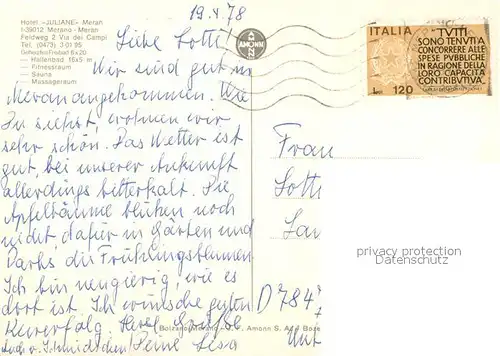 Hotel »JULIANE« Meran
I-39012 Merano - Meran
Feldweg 2 Via dei Campi
Tel. (0473) 3 01 95
Geheiztes Freibad 8x20
— Hallenbad 16x5 m
— Fitnessraum
— Sauna
— Massageraum
ITALIA
TUTTI
SONO TENUTI A
CONCORRERE ALLE
SPESE PUBBLICHE
IN RAGIONE DELLA
LORO CAPACITÀ
CONTRIBUTIVA
L. 120
AMONN
19.4.78
Liebe Lotti!
Wir sind gut in
Meran angekommen. Wie
Du siehst, wohnen wir
sehr schön. Das Wetter ist
gut, bei unserer Ankunft
allerdings bitterkalt. Die
Apfelbäume blühen noch
nicht, dafür in Gärten und
Parks die Frühlingsblumen.
Ich bin neugierig, wie es
dort ist. Ich wünsche guten
Kurerfolg. Herzl. Grüße
Deine
Frau
Lotti
D 784
privacy protection
Datenschutz